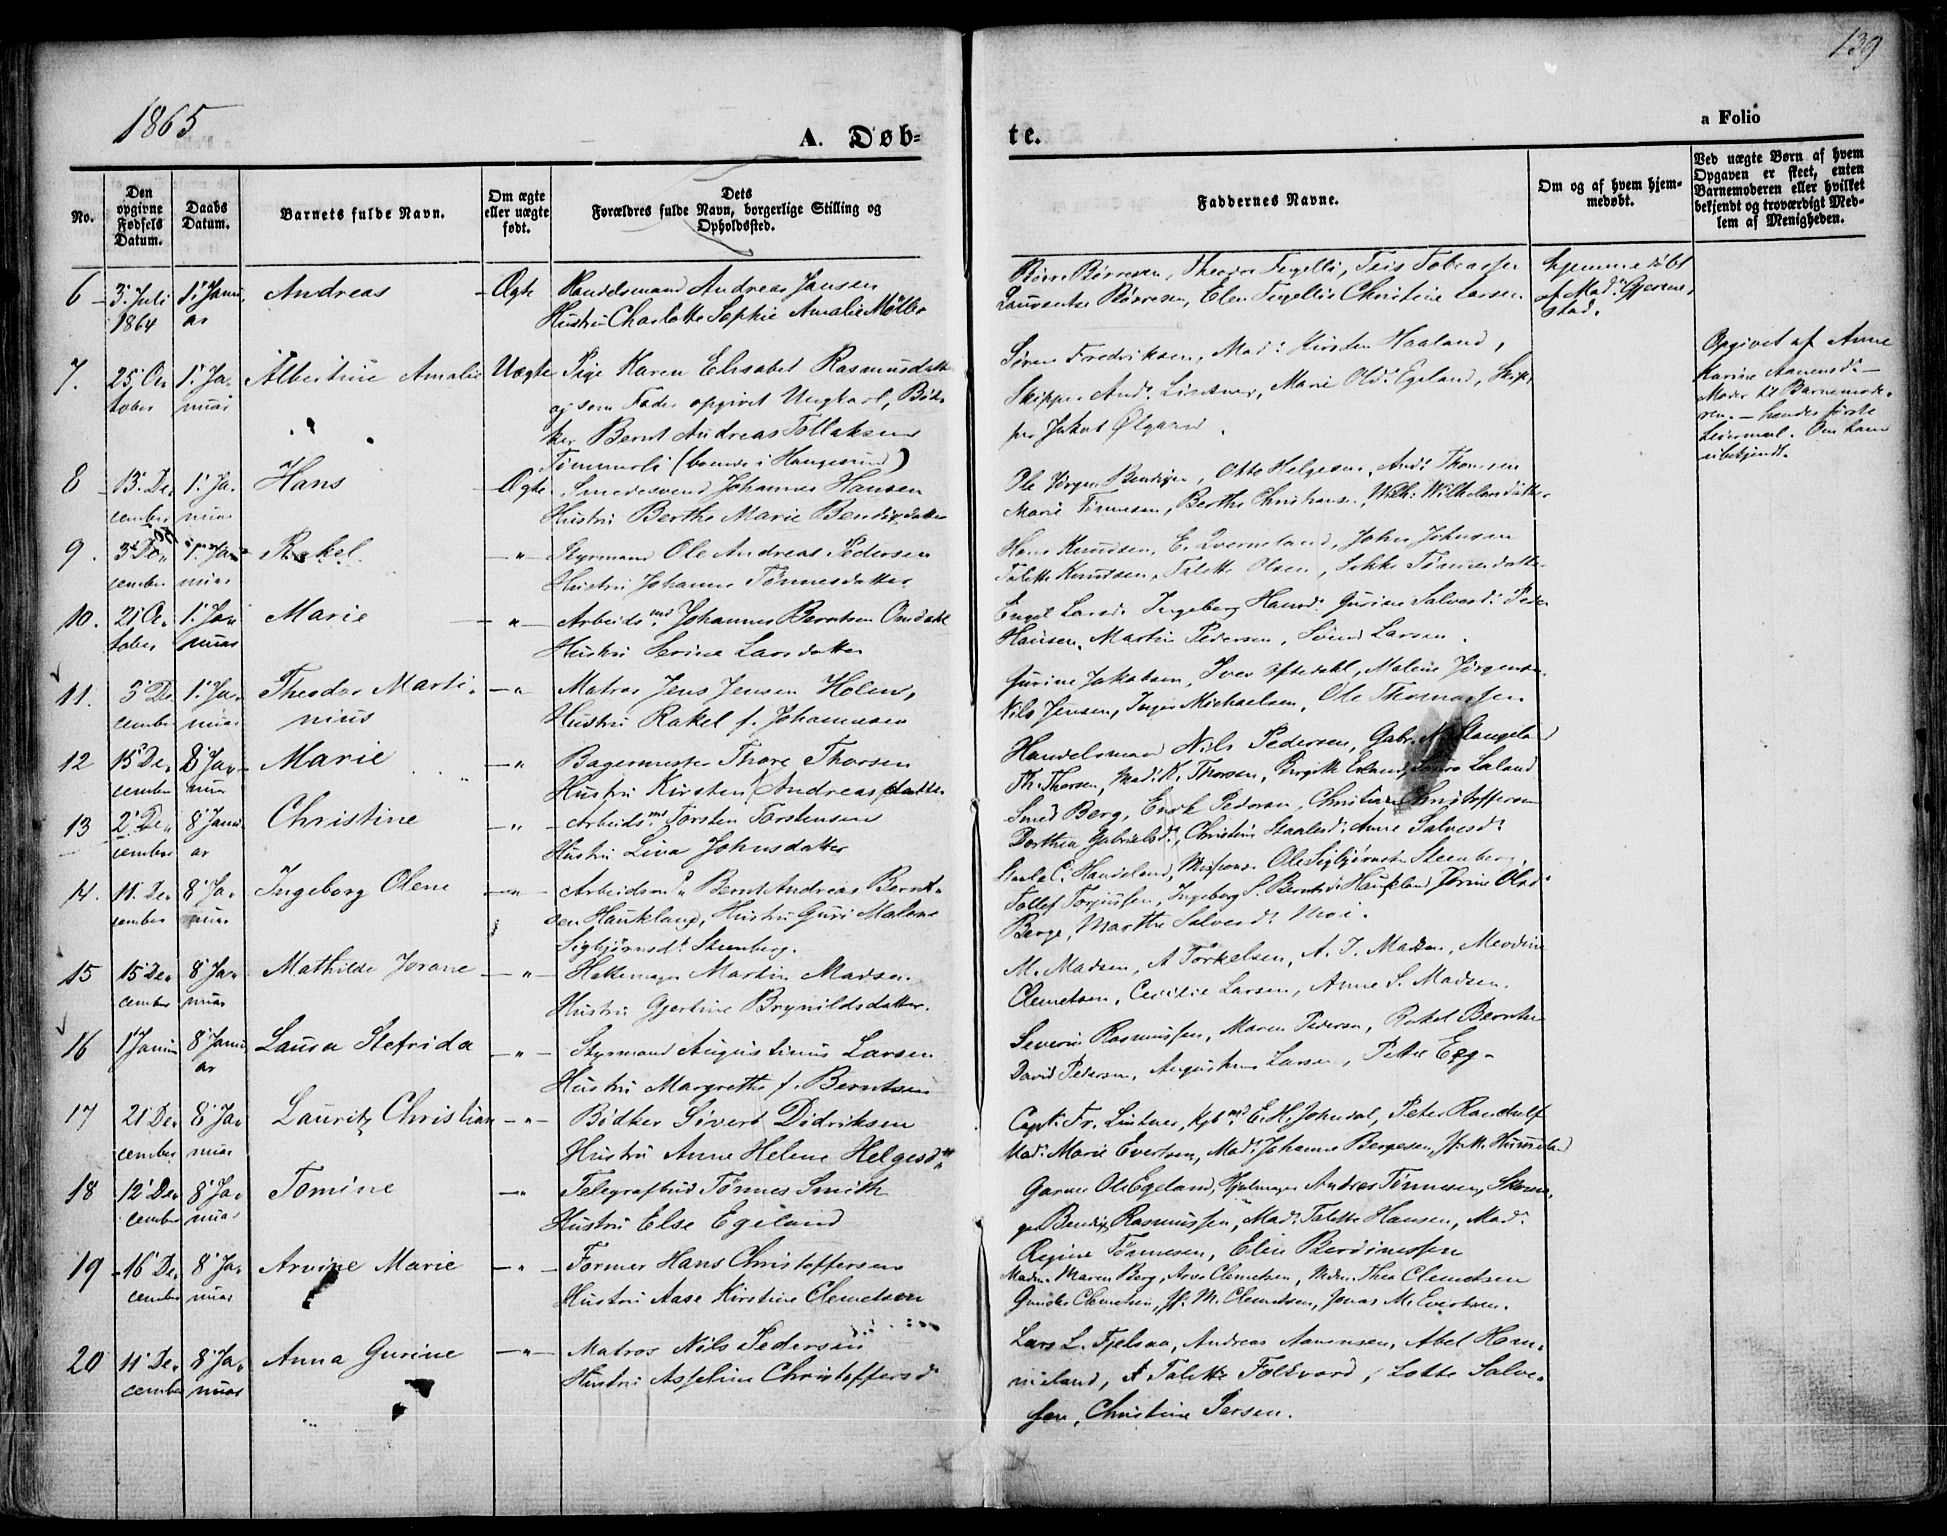 139
1865
A. Døb-
te.
a Folio
No.
Den opgivne Fødsels Datum.
Daabs Datum.
Barnets fulde Navn.
Om ægte eller uægte født.
Dets Forældres fulde Navn, borgerlige Stilling og Opholdssted.
Faddernes Navne.
Om og af hvem hjemmedøbt.
Ved uægte Børn af hvem Opgaven er skeet, enten Barnemoderen eller hvilket bekjendt og troværdigt Medlem af Menigheden.
6 3' Juli 1864 1' Januar Andreas Ægte Handelsmand Andreas Jansen
Hustru Charlotte Sophie Amalie Møller
Børre Børresen, Theodor Figelli, Tobiassen
Børresen, Elen Christine Larsen
hjemmedøbt af Mad:
7. 25' October 1' Januar Albertine Amalie Uægte Pige Karen Elisabet Rasmusdatt
og som Fader opgivet Ungkarl, Bødker Bernt Andreas Tollaksen
Tømmerli (boende i Haugesund)
Søren Fredriksen, Mad: Kirsten Haaland,
Skipper And: Lindtner, Marie Olsd: Egeland, Skipper Jakob Ølgaard.
Opgivet af Anne
Karine Aanensd:
Moder til Barnemoderen. – hendes første
Leiermaal. Om ham
ubekjendt.
8 13' December 1' Januar Hans Ægte Smedesvend Johannes Hansen
Hustru Berthe Marie Bendixdatter
Ole Jørgen Bendixen, Otto Helgesen, And: Thomsen
Marie Tønnesen, Berthe Christians, Wilh: Wilhelmsdatter
9. 3' December 1' Januar Rakel " Styrmand Ole Andreas Pedersen
Hustru Johanne Tønnesdatter
Hans Knudsen, E. Qverneland, John Johnsen
Talette Knudsen, Talette Olsen, Tønnesdatter
10. 21' October 1' Januar Marie " Arbeidsmd Johannes Berntsen Omdahl
Hustru Serine Larsdatter
Engel Larsd: Ingeborg Hansd: Gurine Salvesd: Peder
Hansen, Martin Pedersen, Larsen.
11. 3' December 1' Januar Theodor Martinius " Matros Jens Jensen Holen,
Hustru Rakel f. Johannesen
Gurine Jakobsen, Iver Malene Jørgensen
Nils Jensen, Inger Michaelsen, Ole Thomassen.
12 15' December 8' Januar Marie " Bagermester Thore Thorsen
Hustru Kirsten Andreasdatter
Handelsmand Nils Pedersen, Gabr. Stangeland
Th. Thorsen, Mad: K. Thorsen, Birgitte Laland
13 2' December 8' Januar Christine " Arbeidsmd Torsten Torstensen
Hustru Liva Johnsdatter
Smed Berg, Erik Pedersen, Christiane Christoffersen
Dorthea Gabrielsd:, Christine Anne Salvesd:
14. 11' December 8' Januar Ingeborg Olene " Arbeidsmd Bernt Andreas Berntsen Haukland, Hustru Guri Malene
Sigbjørnsd: Steenberg.
Haueland, Ole Sigbjørnsen Steenberg,
Tollef Torjussen, Ingeborg S. Berntsd: Haukland Olsd:
Berge, Marthe Salvesd: Moi.
15 15' December 8' Januar Mathilde Jorane " Hattemager Martin Madsen.
Hustru Gjertine Brynildsdatter.
M. Madsen, A Torkelsen, A. T. Madsen,
Clemetsen, Cecilie Larsen, Anne S. Madsen.
16 1' Januar 8' Januar Laura Stefrida " Styrmand Augustinus Larsen
Hustru Margrethe f. Berntsen
Severin Rasmussen, Maren Pedersen, Rakel
David Pedersen, Augustinus Larsen, Petter Egg-
17 21' December 8' Januar Lauritz Christian " Bødker Sivert Didriksen
Hustru Anne Helene Helgesd:
Capt: Fr. Lintner, Kjbmd: E. H. Johndal, Peter Randulf
Mad: Marie Evertsen, Mad: Johanne Bergesen,
18 12' December 8' Januar Tomine " Telegrafbud Tønnes Smith
Hustru Else Egeland
Garver Ole Egeland, Hjulmager Andreas Tønnesen, Skomager Bendix Rasmussen, Mad: Talette Hansen, Mad:
Regine Tønnesen, Elen Berdinessen
19 16' December 8' Januar Arvine Marie " Former Hans Christoffersen
Hustru Aase Kirstine Clemetsen
Madm: Maren Berg, Clemetsen, Madm: Thea Clemetsen
Clemetsen, M. Clemetsen, Jonas M. Evertsen.
20 11' December 8' Januar Anna Gurine " Matros Nils Pedersen
Hustru Asseline Christoffersd
Lars L. Fjelsaa, Andreas Aanensen, Abel Hommeland, Talette Folkvord, Lotte Salvesen, Christine Persen.